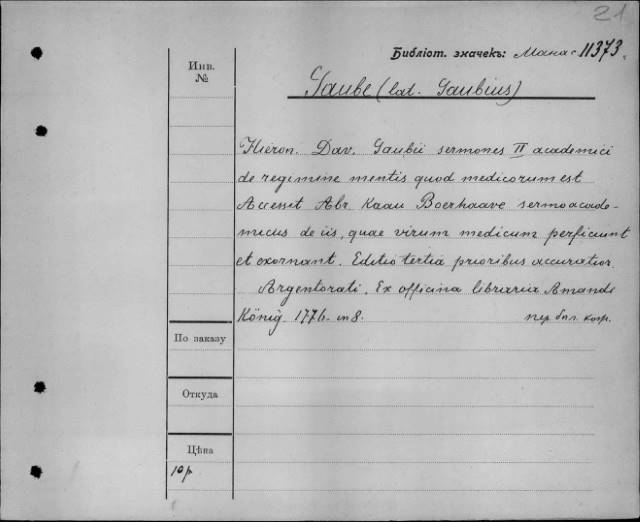 21
Библіот. значекъ: Манас 11373.
Инв.
№
Gaube (lat. Gaubius)
Hieron. Dav. Gaubii sermones II academici
de regimine mentis quod medicorum est
Accessit Abr Kaau Boerhaave sermo acade-
micus de iis, quae virum medicum perficiunt
et exornant. Editio tertia prioribus accuratior.
Argentorati. Ex officina libraria Amandi
König. 1776. in 8.
По заказу
Откуда
Цѣна
10 р